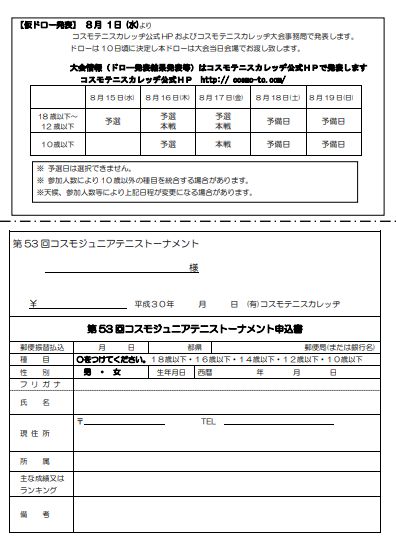 【仮ドロー発表】 8月1日(水)より
コスモテニスカレッヂ公式HPおよびコスモテニスカレッヂ大会事務局で発表します。
ドローは10日頃に決定し本ドローは大会当日会場でお渡し致します。
大会情報(ドロー発表結果発表等)はコスモテニスカレッヂ公式HPで発表します
コスモテニスカレッヂ公式HP http://cosmo-tc.com/
8月15日(水) 8月16日(木) 8月17日(金) 8月18日(土) 8月19日(日)
18歳以下~ 予選 予選 予選 予備日 予備日
12歳以下 本戦 本戦
10歳以下 予選 予選 予備日 予備日
本戦
※ 予選日は選択できません。
※ 参加人数により10歳以外の種目を統合する場合があります。
※天候、参加人数等により上記日程が変更になる場合があります。
第53回コスモジュニアテニストーナメント
様
¥ 平成30年 月 日 (有)コスモテニスカレッヂ
第53回コスモジュニアテニストーナメント申込書
郵便振替払込 月 日 都県 郵便局(または銀行名)
種 目 〇をつけてください。18歳以下・16歳以下・14歳以下・12歳以下・10歳以下
性 別 男 ・ 女 生年月日 西暦 年 月 日
フリガナ
氏 名
現住所 〒 TEL
所 属
主な成績又は
ランキング
備 考